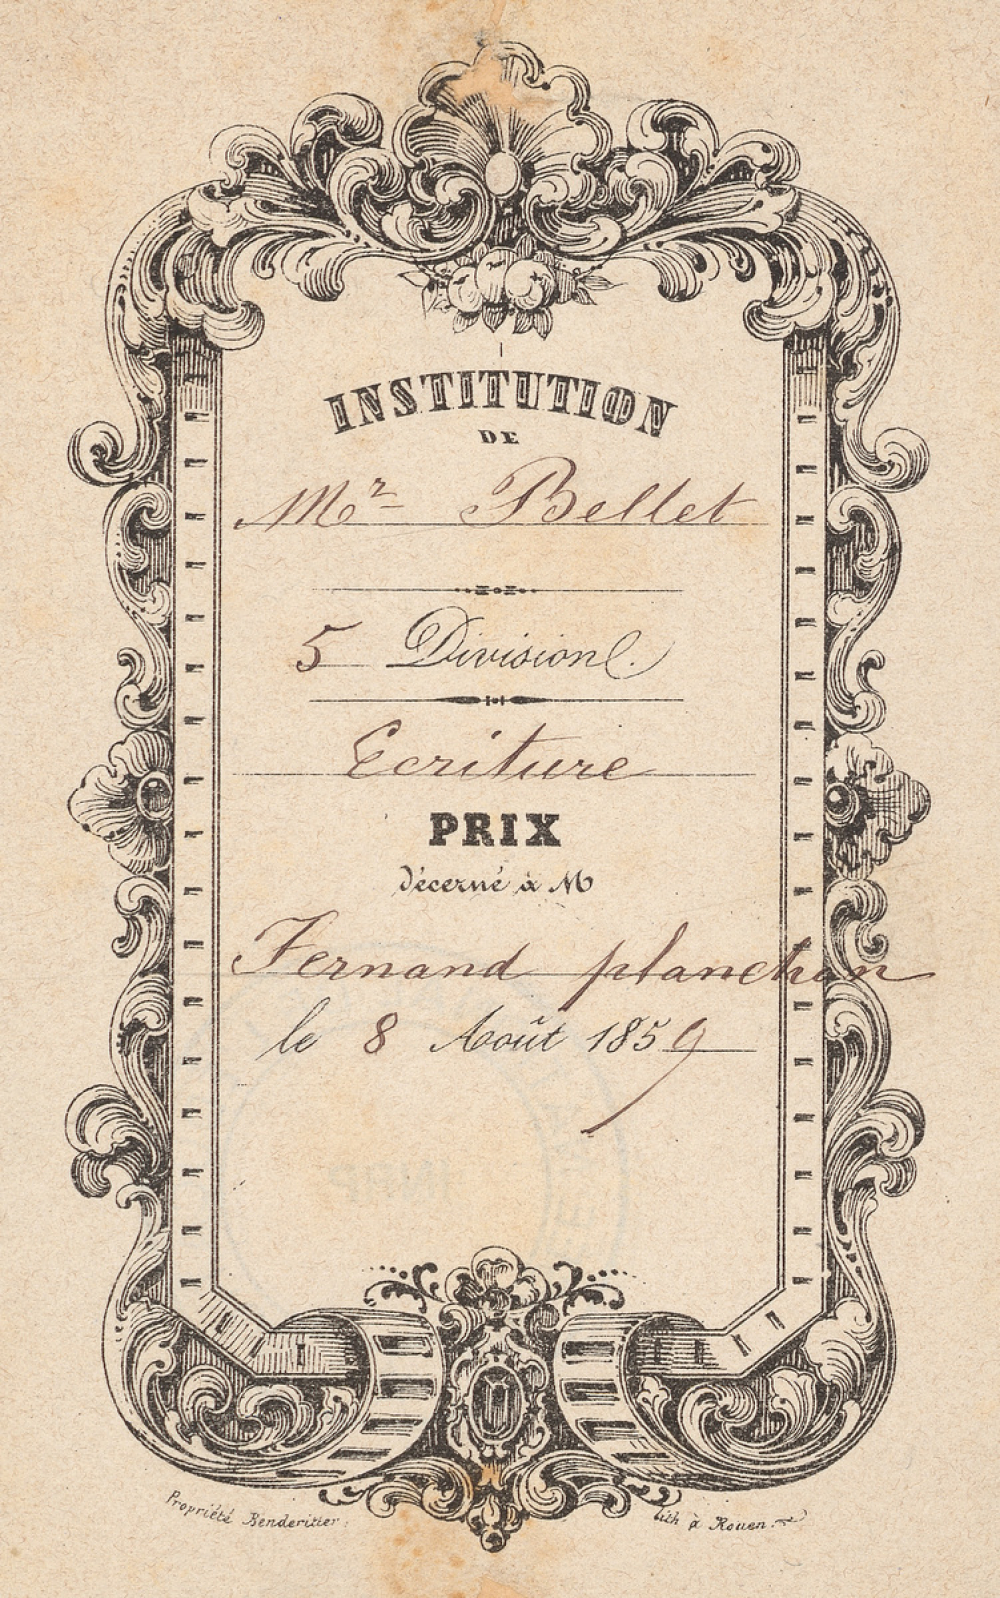 INSTITUTION
DE
Mr Bellet
5 Division.
Ecriture
PRIX
décerné à M
Fernand planchon
le 8 Août 1859
Propriété Benderitter.
lith à Rouen.